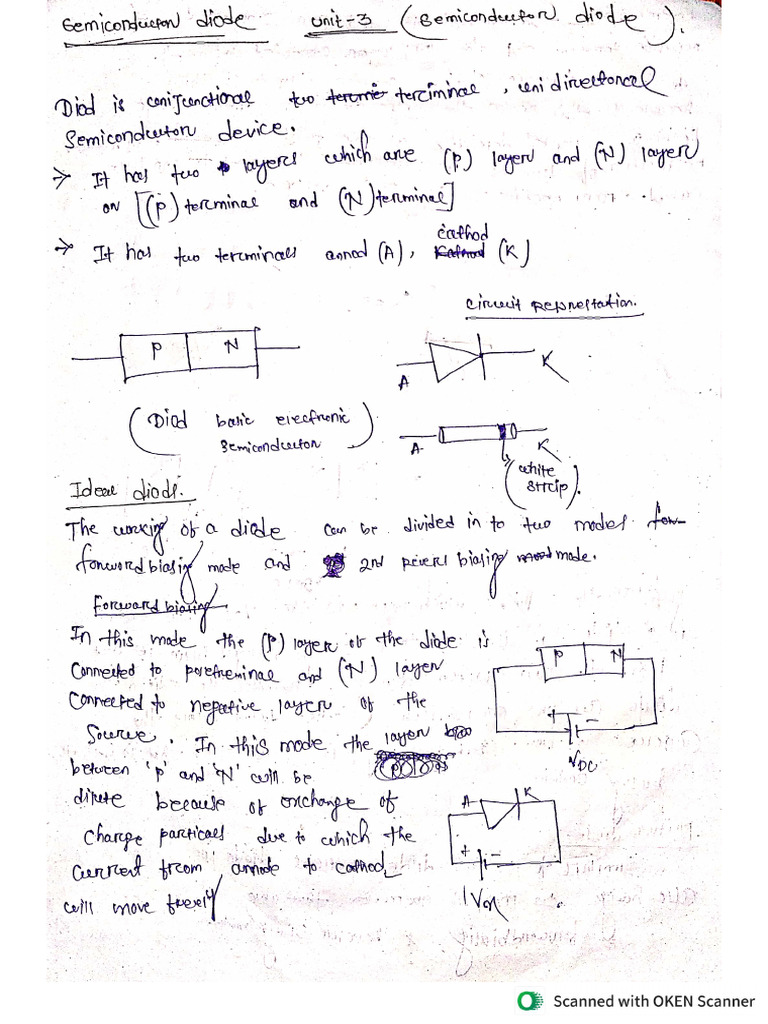 Semiconductor diode unit-3 (Semiconductor diode).
Diod is conijunctional two terminal, unidirectional
Semiconductor device.
→ It has two layers which are (P) layer and (N) layer
or [(P) terminal and (N) terminal]
→ It has two terminals annod (A), cathod (K)
Circuit Represtation.
P N
A K
(Diod basic electronic
Semiconductor)
A K
(white
strip).
Ideal diode.
The working of a diode can be divided in to two modes
forword biasing mode and 2nd revers biasing mode.
Forward biasing
In this mode the (P) layer of the diode is
Connected to and (N) layer
Connected to negative layer of the
Source. In this mode the layer
between 'P' and 'N' will be
dilute because of exchange of
charge particals due to which the
current from annode to cathod
will move freely
P N
+ -
VDC
A K
+ -